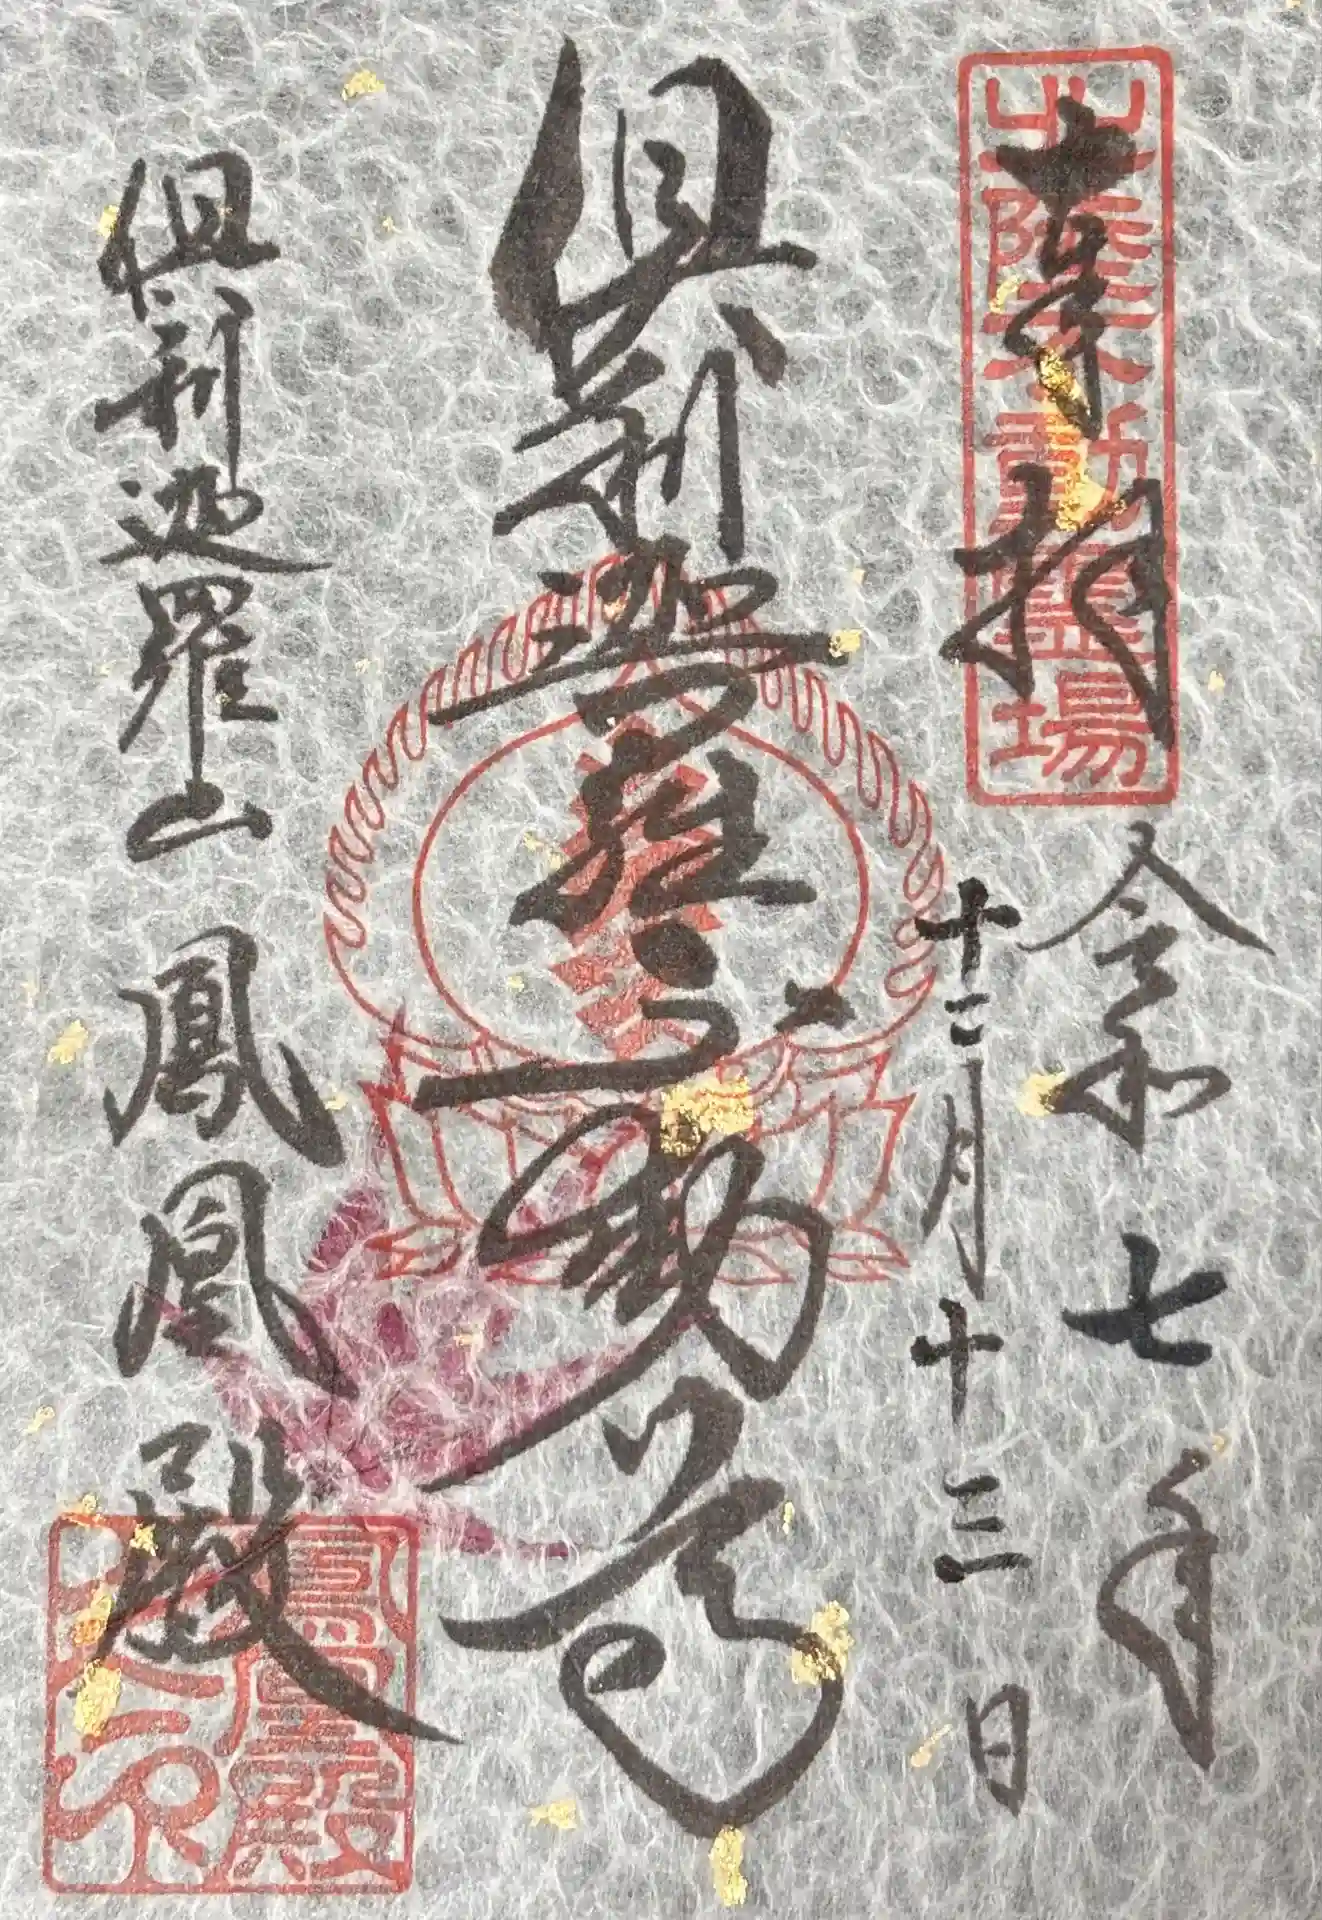 北陸不動霊場
奉拝
令和七年
十二月十三日
倶利迦羅不動尊
倶利迦羅山 鳳凰殿
鳳凰殿之印